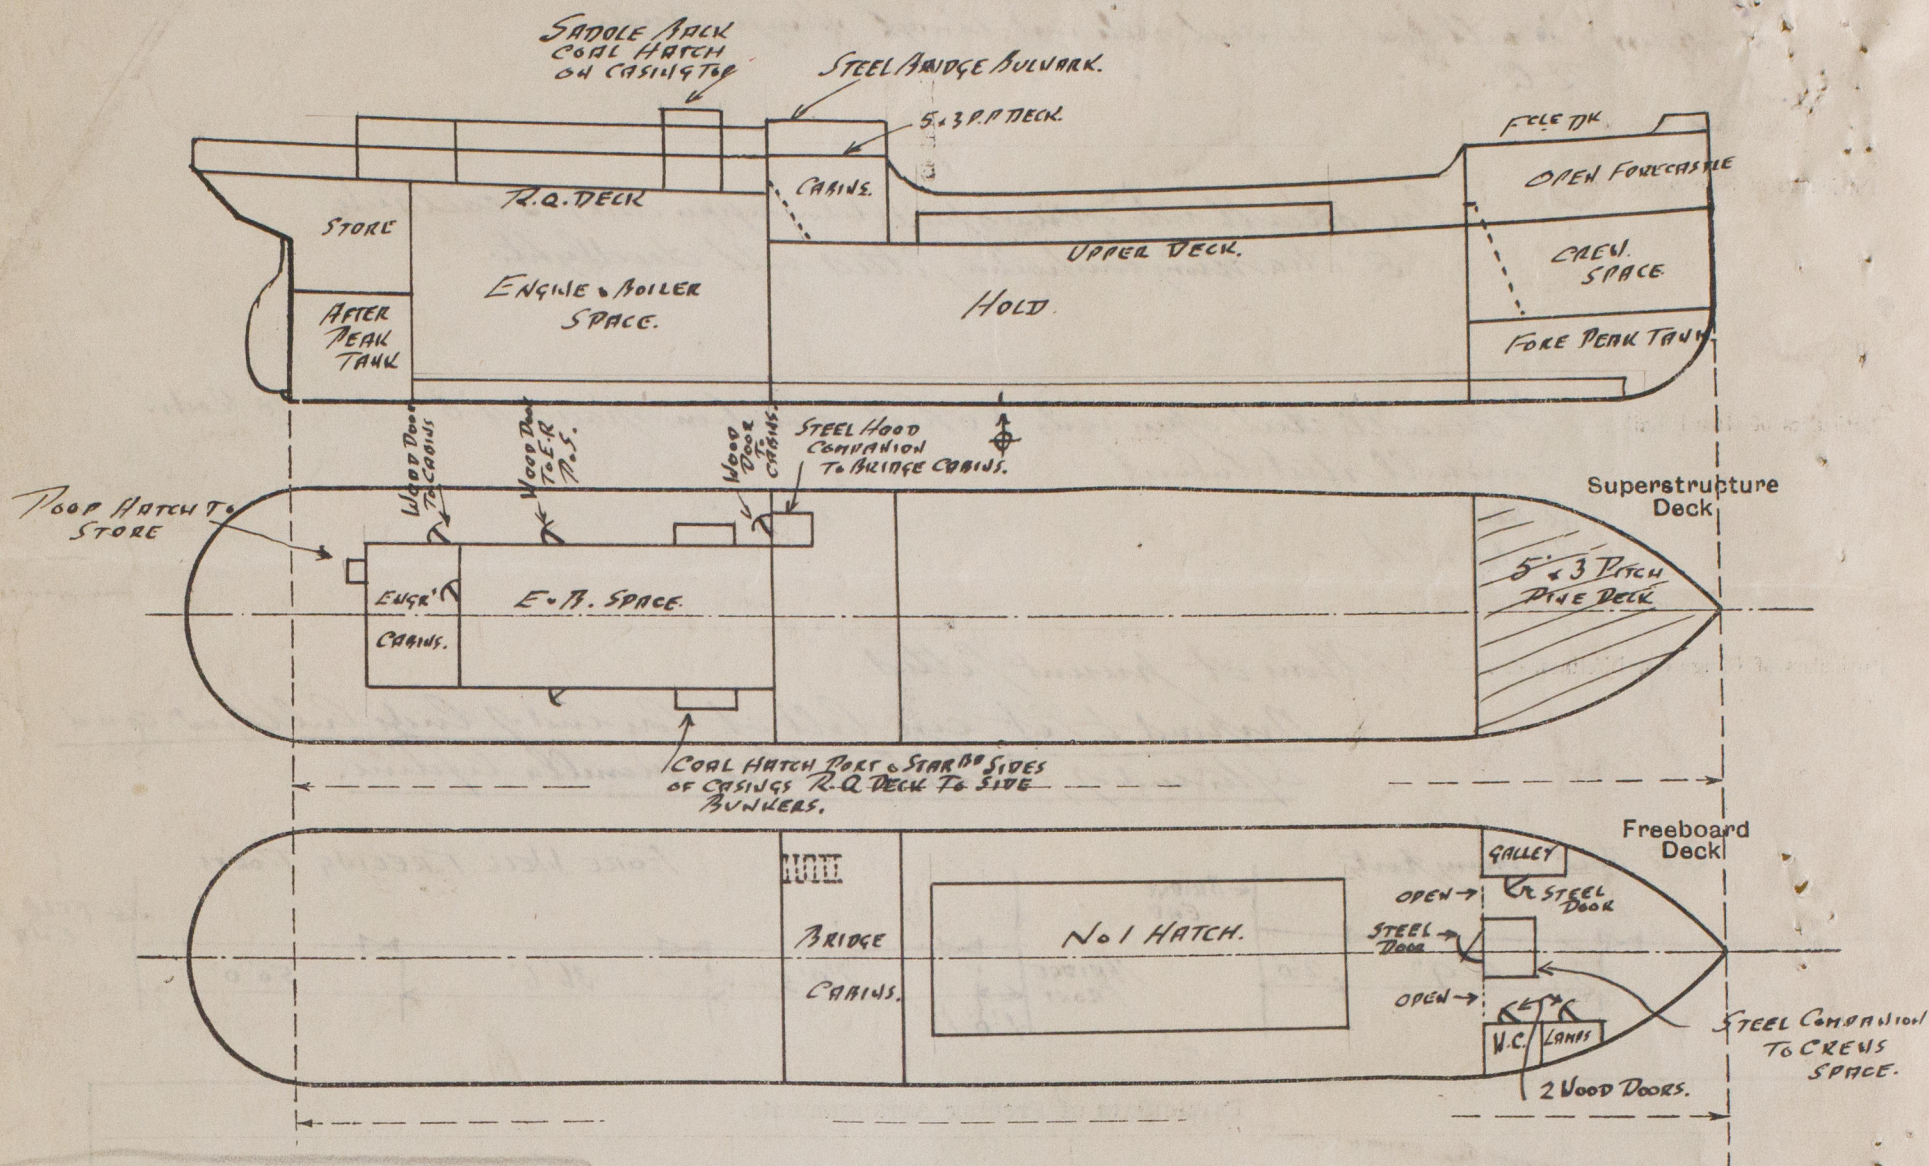 SADDLE BACK
COAL HATCH
ON CASING TOP
STEEL BRIDGE BULWARK.
5×3 P.P DECK.
F'CLE DK
OPEN FORECASTLE
CABINS.
R.Q. DECK
STORE
UPPER DECK.
CREW.
SPACE
ENGINE & BOILER
SPACE.
HOLD.
AFTER
PEAK
TANK
FORE PEAK TANK
WOOD DOOR
TO CABINS
WOOD DOOR
TO E-R
P.&S.
WOOD
DOOR
TO
CABINS.
STEEL HOOD
COMPANION
TO BRIDGE CABINS.
Superstructure
Deck
POOP HATCH TO
STORE
5" × 3 PITCH
PINE DECK
ENGRS
CABINS.
E & B. SPACE.
COAL HATCH PORT & STARBD SIDES
OF CASINGS R-Q DECK TO SIDE
BUNKERS.
Freeboard
Deck
GALLEY
OPEN
STEEL
DOOR
BRIDGE
CABINS.
No 1 HATCH.
STEEL
DOOR
OPEN
W.C.
LAMPS
STEEL COMPANION
TO CREWS
SPACE.
2 WOOD DOORS.